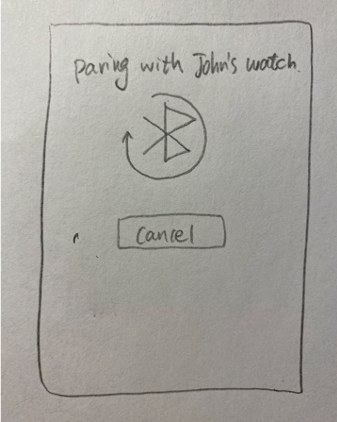 paring with John's watch.
Cancel